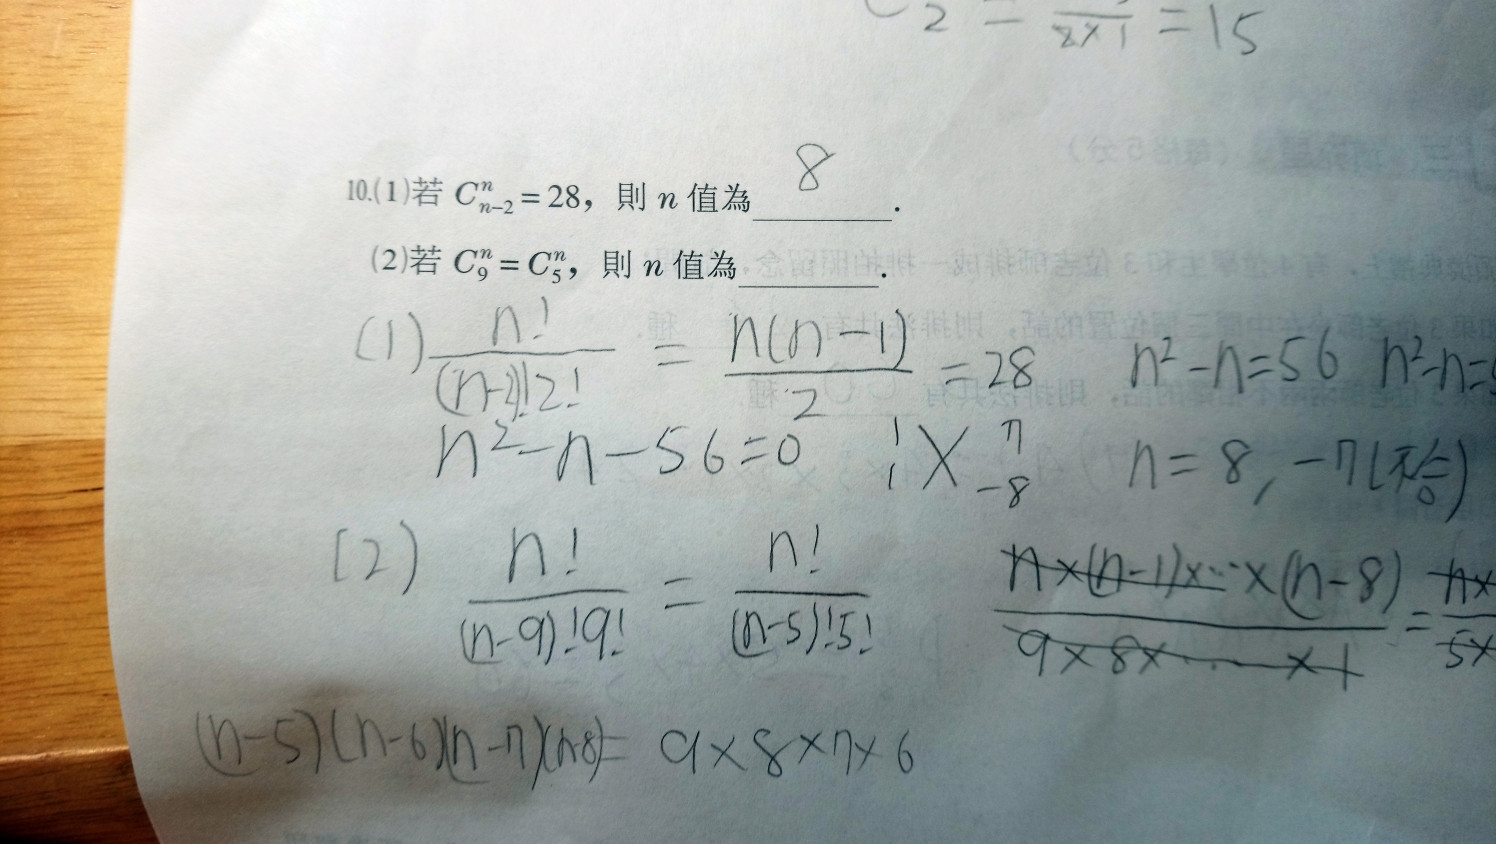 2 = / 2×1 = 15
8
10.(1)若 C^n_{n-2} = 28, 則 n 值為______.
(2)若 C^n_9 = C^n_5, 則 n 值為______.
(1) n! / (n-2)!2! = n(n-1) / 2 = 28 n²-n=56 n²-n=5
n²-n-56=0 1 1 × 7 -8 n = 8, -7(不合)
(2) n! / (n-9)!9! = n! / (n-5)!5! n×(n-1)×…×(n-8) / 9×8×……×1 = n× / 5×
(n-5)(n-6)(n-7)(n-8)= 9×8×7×6